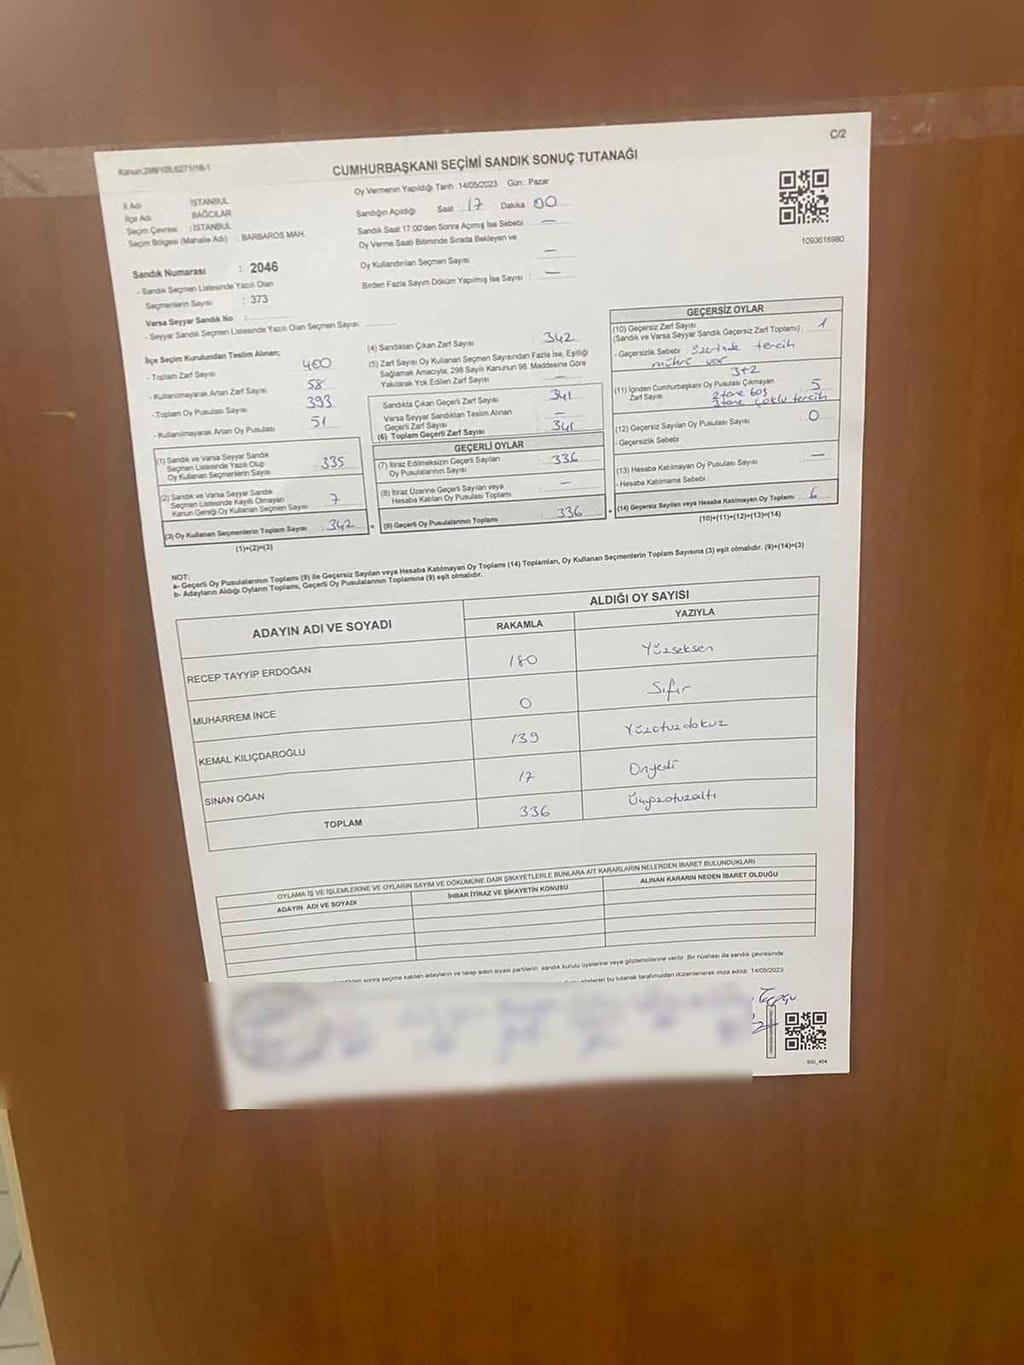 C/2
Kanun:298/105,6271/18-1
CUMHURBAŞKANI SEÇİMİ SANDIK SONUÇ TUTANAĞI
Oy Vermenin Yapıldığı Tarih :14/05/2023 Gün : Pazar
İl Adı : İSTANBUL
İlçe Adı : BAĞCILAR
Seçim Çevresi : İSTANBUL
Seçim Bölgesi (Mahalle Adı) : BARBAROS MAH.
Sandığın Açıldığı Saat : 17 Dakika : 00
Sandık Saat 17:00'den Sonra Açılmış İse Sebebi : —
Oy Verme Saati Bitiminde Sırada Bekleyen ve
Oy Kullandırılan Seçmen Sayısı —
Birden Fazla Sayım Döküm Yapılmış İse Sayısı : —
1093616980
Sandık Numarası : 2046
- Sandık Seçmen Listesinde Yazılı Olan
Seçmenlerin Sayısı : 373
Varsa Seyyar Sandık No :
- Seyyar Sandık Seçmen Listesinde Yazılı Olan Seçmen Sayısı:
İlçe Seçim Kurulundan Teslim Alınan;
- Toplam Zarf Sayısı 400
- Kullanılmayarak Artan Zarf Sayısı 58
- Toplam Oy Pusulası Sayısı 393
- Kullanılmayarak Artan Oy Pusulası 51
(1) Sandık ve Varsa Seyyar Sandık
Seçmen Listesinde Yazılı Olup
Oy Kullanan Seçmenlerin Sayısı : 335
(2) Sandık ve Varsa Seyyar Sandık
Seçmen Listesinde Kayıtlı Olmayan
Kanun Gereği Oy Kullanan Seçmen Sayısı 7
(3) Oy Kullanan Seçmenlerin Toplam Sayısı : 342
(1)+(2)=(3)
(4) Sandıktan Çıkan Zarf Sayısı 342
(5) Zarf Sayısı Oy Kullanan Seçmen Sayısından Fazla İse, Eşitliği
Sağlamak Amacıyla; 298 Sayılı Kanunun 98. Maddesine Göre
Yakılarak Yok Edilen Zarf Sayısı —
Sandıkta Çıkan Geçerli Zarf Sayısı 341
Varsa Seyyar Sandıktan Teslim Alınan
Geçerli Zarf Sayısı —
(6) Toplam Geçerli Zarf Sayısı 341
GEÇERLİ OYLAR
(7) İtiraz Edilmeksizin Geçerli Sayılan
Oy Pusulalarının Sayısı : 336
(8) İtiraz Üzerine Geçerli Sayılan veya
Hesaba Katılan Oy Pusulası Toplamı : —
= (9) Geçerli Oy Pusulalarının Toplamı : 336
GEÇERSİZ OYLAR
(10) Geçersiz Zarf Sayısı
(Sandık ve Varsa Seyyar Sandık Geçersiz Zarf Toplamı) : 1
- Geçersizlik Sebebi : üzerinde tercih
mührü var
3+2
(11) İçinden Cumhurbaşkanı Oy Pusulası Çıkmayan
Zarf Sayısı 5
2 tane boş
3 tane çoklu tercih
(12) Geçersiz Sayılan Oy Pusulası Sayısı 0
- Geçersizlik Sebebi
(13) Hesaba Katılmayan Oy Pusulası Sayısı —
- Hesaba Katılmama Sebebi :
+ (14) Geçersiz Sayılan veya Hesaba Katılmayan Oy Toplamı 6
(10)+(11)+(12)+(13)=(14)
NOT:
a- Geçerli Oy Pusulalarının Toplamı (9) ile Geçersiz Sayılan veya Hesaba Katılmayan Oy Toplamı (14) Toplamları, Oy Kullanan Seçmenlerin Toplam Sayısına (3) eşit olmalıdır. (9)+(14)=(3)
b- Adayların Aldığı Oyların Toplamı, Geçerli Oy Pusulalarının Toplamına (9) eşit olmalıdır.
ADAYIN ADI VE SOYADI ALDIĞI OY SAYISI
RAKAMLA YAZIYLA
RECEP TAYYİP ERDOĞAN 180 Yüzseksen
MUHARREM İNCE 0 Sıfır
KEMAL KILIÇDAROĞLU 139 Yüzotuzdokuz
SİNAN OĞAN 17 Onyedi
TOPLAM 336 Üçyüzotuzaltı
OYLAMA İŞ VE İŞLEMLERİNE VE OYLARIN SAYIM VE DÖKÜMÜNE DAİR ŞİKAYETLERLE BUNLARA AİT KARARLARIN NELERDEN İBARET BULUNDUKLARI
ADAYIN ADI VE SOYADI İHBAR İTİRAZ VE ŞİKAYETİN KONUSU ALINAN KARARIN NEDEN İBARET OLDUĞU
sonra seçime katılan adayların ve talep eden siyasi partilerin sandık kurulu üyelerine veya gözlemcilerine verilir. Bir nüshası da sandık çevresinde
bu tutanak tarafımızdan düzenlenerek imza edildi. 14/05/2023